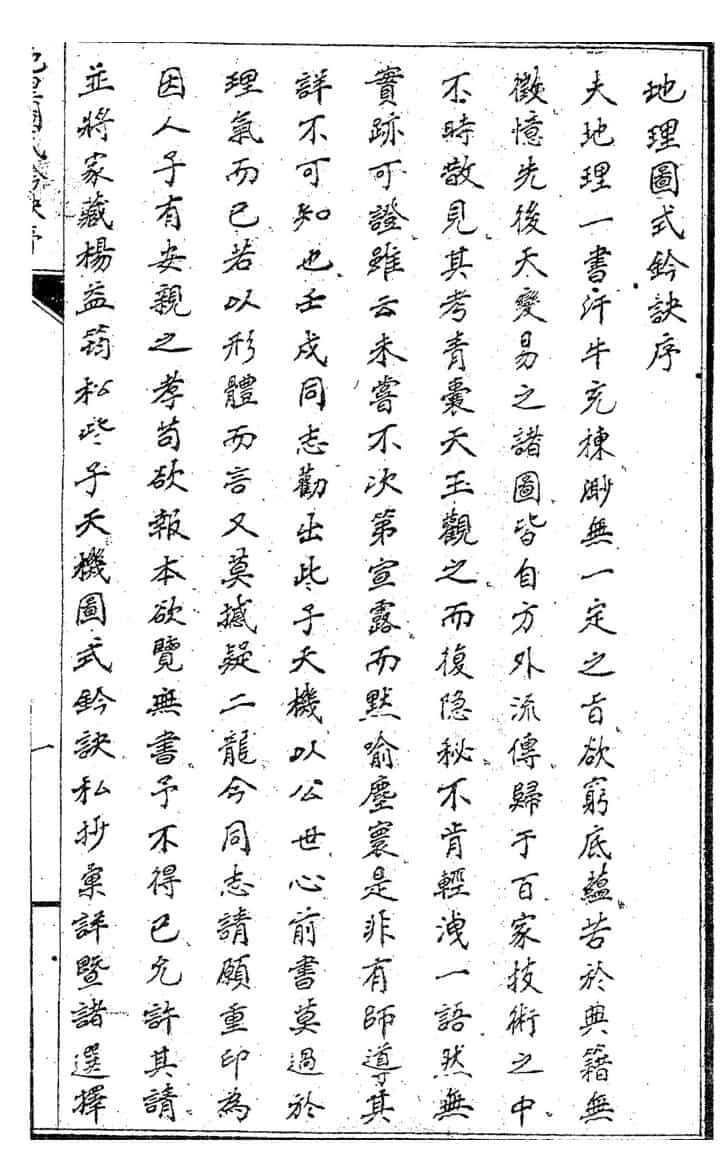 地理圖式鈐訣序
夫地理一書汗牛充棟渺無一定之旨欲窮底蘊苦於典籍無
徵憶先後天變易之諸圖皆自方外流傳歸于百家技術之中
不時散見其考青囊天玉觀之而復隐秘不肯輕洩一語然無
實跡可證雖云未嘗不次第宣露而默喻塵寰是非有師導其
詳不可知也壬戌同志勸出些子天機以公世心前書莫過於
理氣而已若以形體而言又莫撼疑二龍今同志請願重印為
因人子有安親之孝苟欲報本欲覽無書予不得已允許其請
並將家藏楊益筠松些子天機圖式鈐訣私抄彙詳暨諸選擇
地理圖式鈐訣序
一